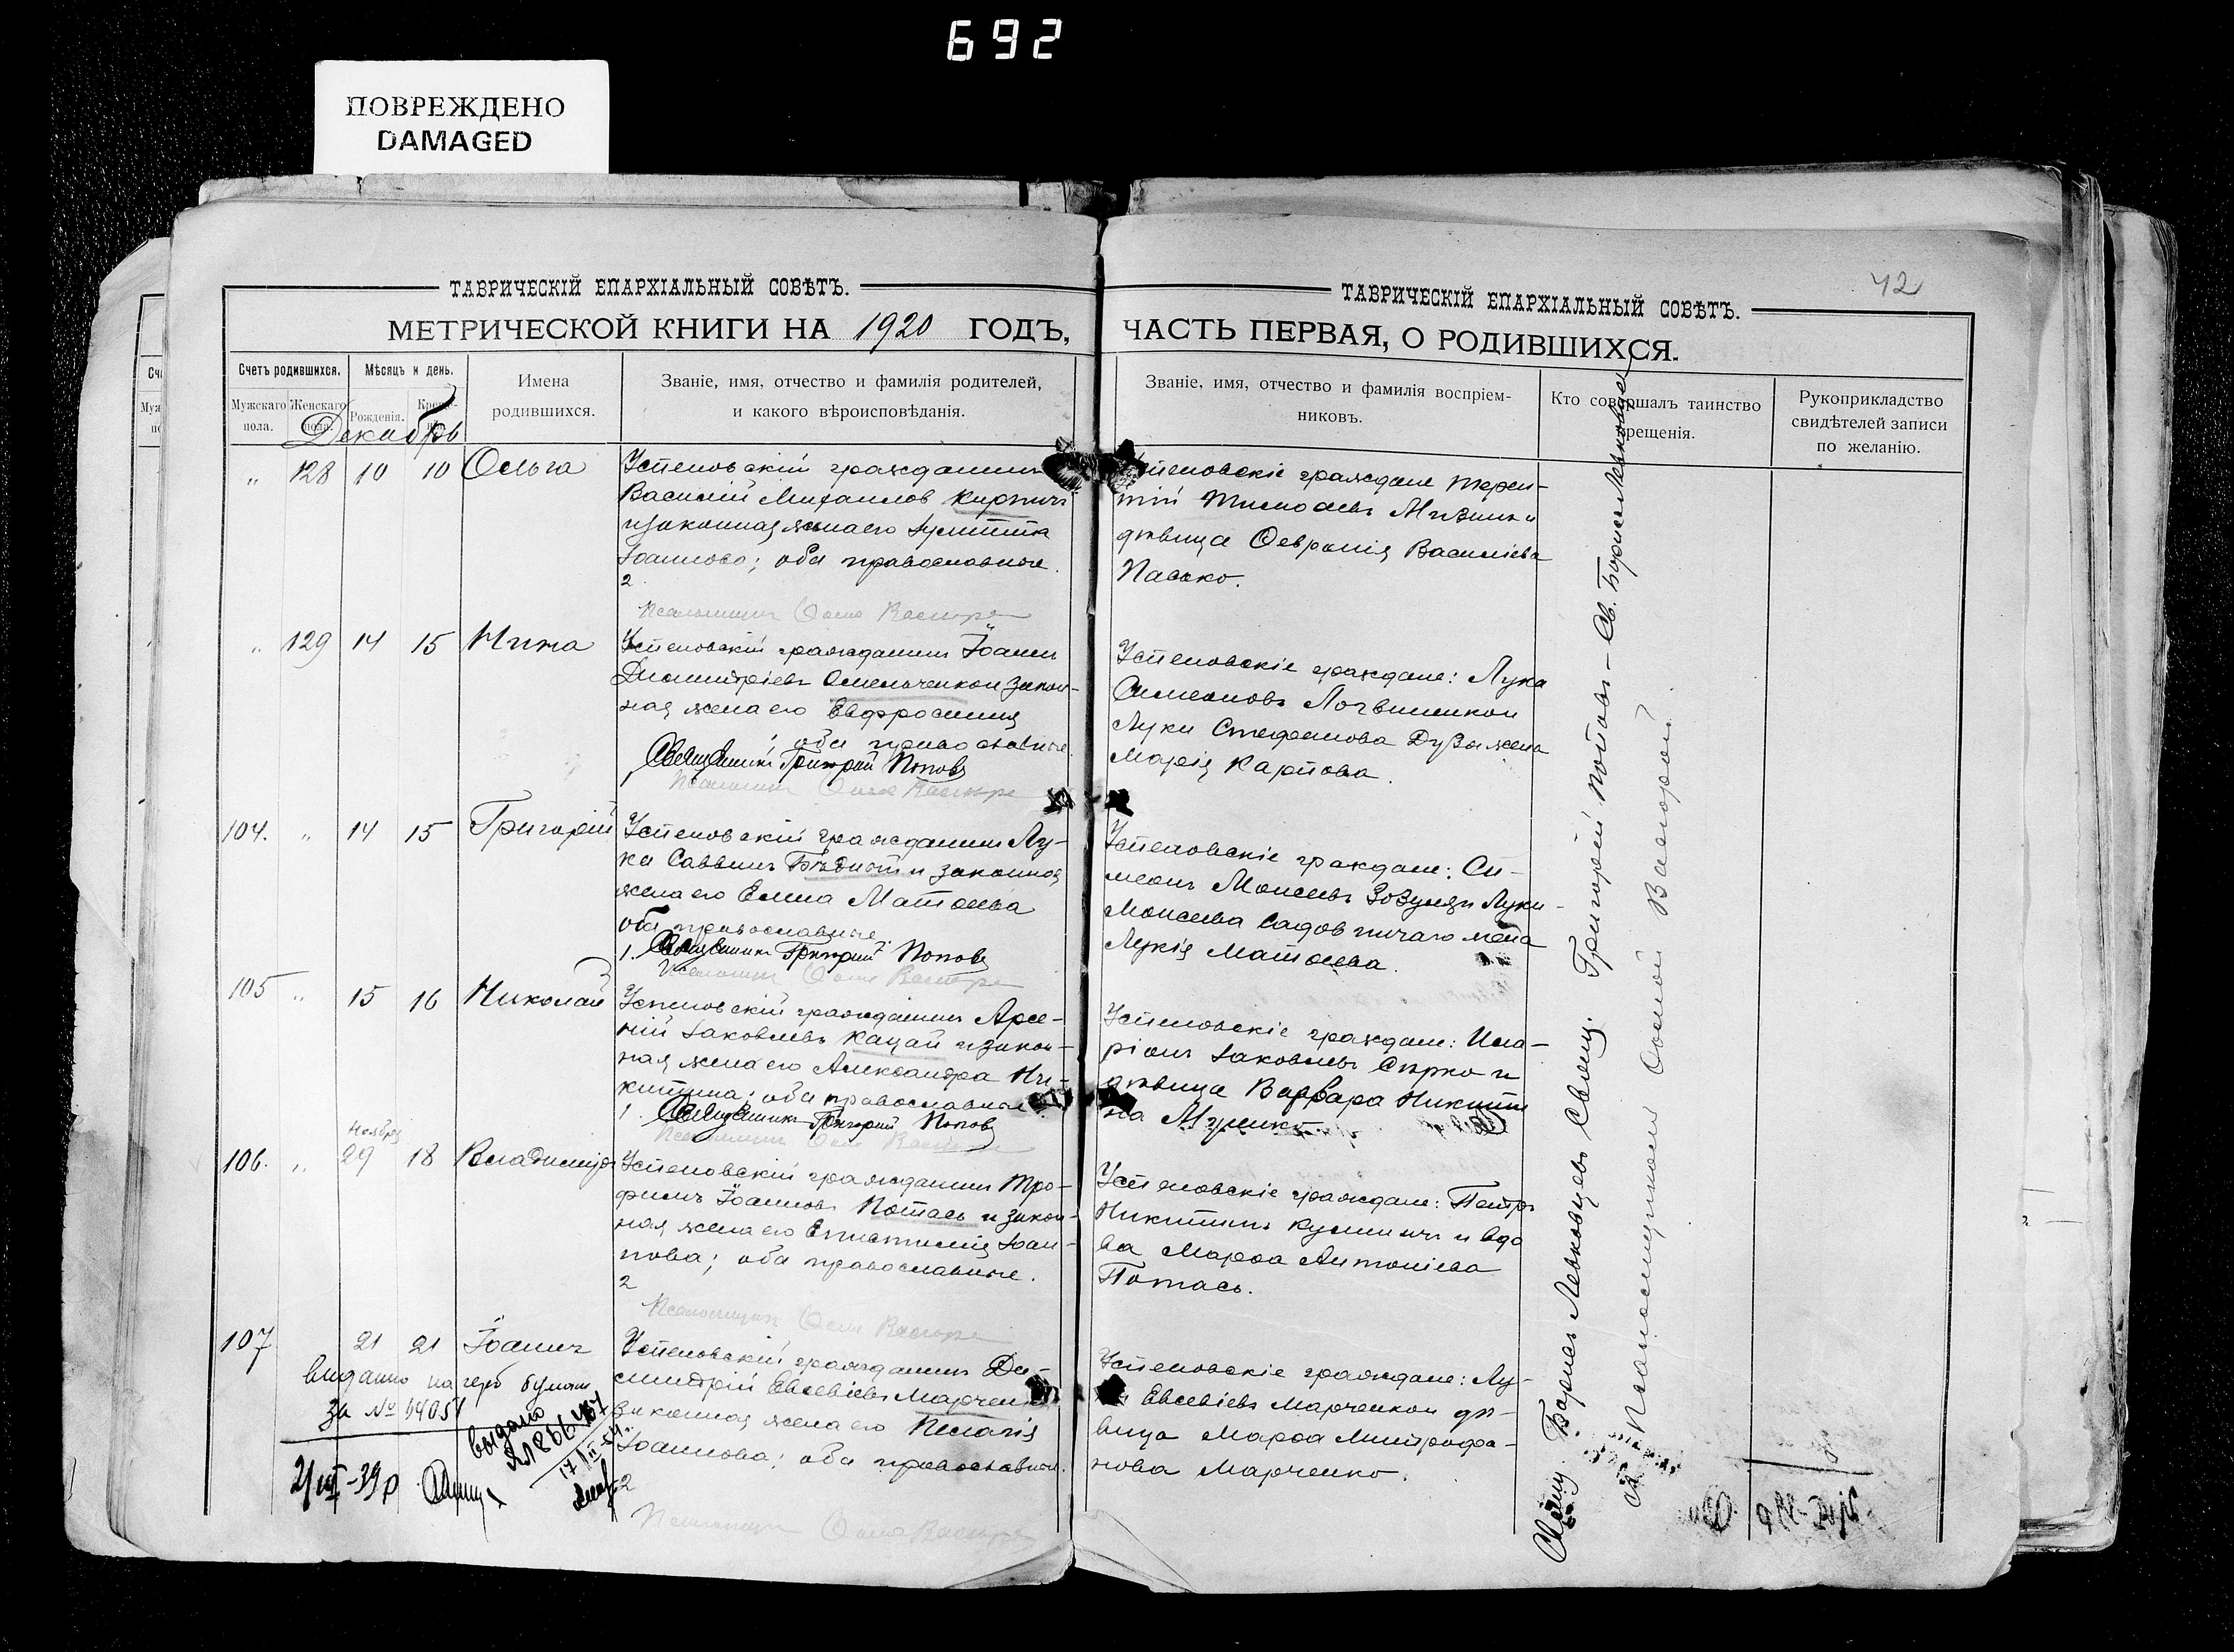 692
ПОВРЕЖДЕНО
DAMAGED
42
ТАВРИЧЕСКІЙ ЕПАРХІАЛЬНЫЙ СОВѢТЪ.
МЕТРИЧЕСКОЙ КНИГИ НА 1920 ГОДЪ,
Счетъ родившихся.
Мужскаго пола.
Женскаго пола.
Мѣсяцъ и день.
Рожденія.
Креще-
Имена
родившихся.
Званіе, имя, отчество и фамилія родителей,
и какого вѣроисповѣданія.
Декабрь
„ 128 10 10 Ольга
Успеновскій гражданинъ
Василій Михаилов Кирпичъ
и законная жена его Иулитта
Іоаннова; оба православные.
2
Псаломщикъ
„ 129 14 15 Нина
Успеновскій гражданинъ Іоаннъ
Димитріевъ Омельченко и закон-
ная жена его Евфросинія
оба православные
Священникъ Григорій Поповъ
Псаломщикъ
104. „ 14 15 Григорій
Успеновскій гражданинъ Лу-
ка Саввинъ и законная
жена его Елена Матѳеева
оба православные
1. Священникъ Григорій Поповъ
Псаломщикъ
105 „ 15 16 Николай
Успеновскій гражданинъ Арсе-
ній Іаковлевъ Кацай и закон-
ная жена его Александра Ни-
китина; оба православные.
1. Священникъ Григорій Поповъ
Псаломщикъ
Ноября
106. „ 29 18 Владимиръ
Успеновскій гражданинъ Тро-
фимъ Іоанновъ Потась и закон-
ная жена его Епистимія Іоан-
нова; оба православные.
2
Псаломщикъ
107 21 21 Іоаннъ
Успеновскій гражданинъ Ди-
митрій Евсевіевъ Марченко
законная жена его Пелагія
Іоаннова; оба православные.
2
Псаломщикъ
выдано на герб бумаги
за №
выдано
ТАВРИЧЕСКІЙ ЕПАРХІАЛЬНЫЙ СОВѢТЪ.
ЧАСТЬ ПЕРВАЯ, О РОДИВШИХСЯ.
Званіе, имя, отчество и фамилія воспріем-
никовъ.
Кто совершалъ таинство
крещенія.
Рукоприкладство
свидѣтелей записи
по желанію.
Успеновскіе граждане Терен-
тій
дѣвица Ѳевронія Василіева
Пасько.
Успеновскіе граждане: Лука
Симеоновъ Логвиненко и
Луки Стефанова жена
Марія Карпова.
Успеновскіе граждане: Си-
меонъ Моисеевъ Зозуля и Луки
Моисеева Садовничаго жена
Лукія Матѳеева.
Успеновскіе граждане: Ила-
ріонъ Іаковлевъ Сирко и
дѣвица Варвара Никити
на
Успеновскіе граждане: Петръ
Никитинъ и вдо
ва Марѳа Антоніева
Потась.
Успеновскіе граждане: Лу-
Евсевіевъ Марченко и дѣ-
вица Марѳа Митрофа-
нова Марченко.
Свящ. Борисъ Левковцевъ Свящ. Григорій Поповъ — Св. Борисъ Левковцевъ
съ Псаломщикомъ